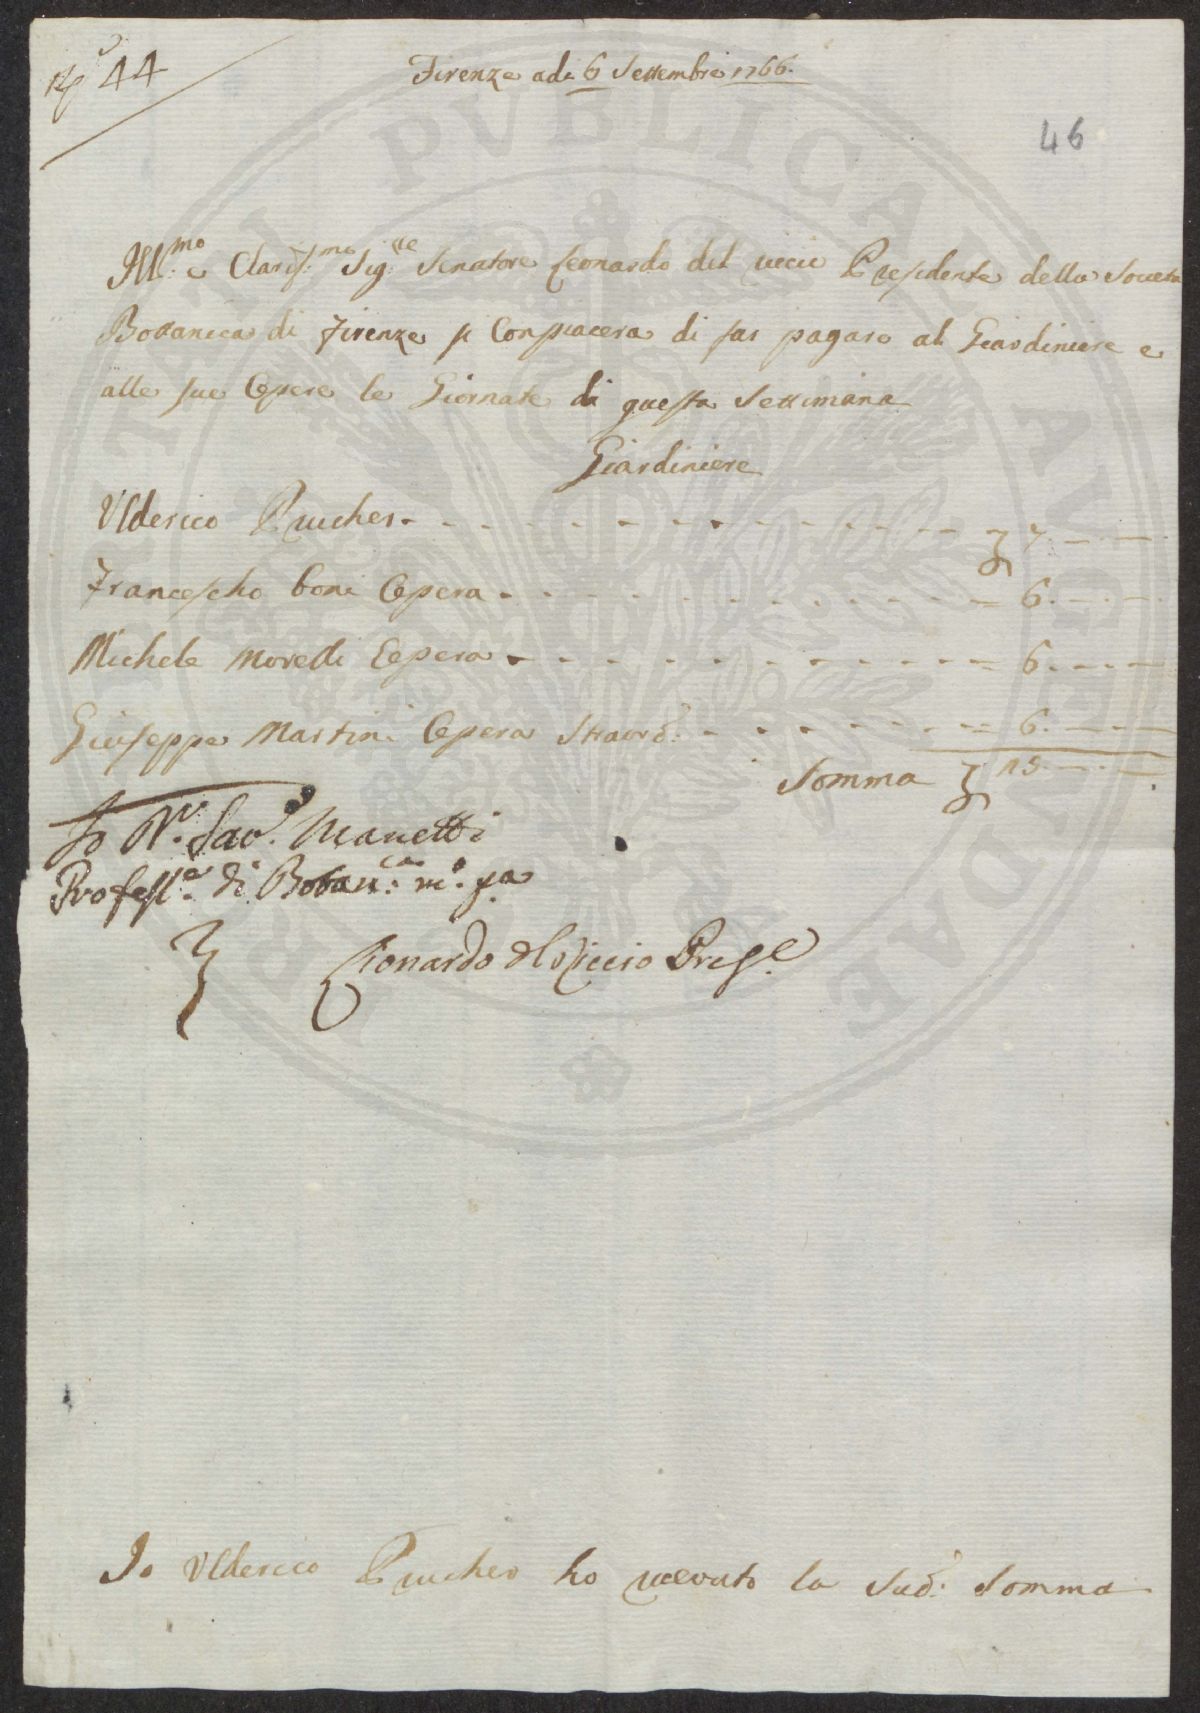 N.o 44
Firenze adi 6 Settembre 1766.
46
Ill:mo e Claris:mo Sig:re Senatore Leonardo del riccio Presidente della Societa
Bottanica di Firenze si Conpiacera di far pagare al Giardiniere e
alle sue Opere le Giornate di questa Settimana
Giardiniere
Ulderico Prucher - - - 7. — —
Francescho boni Opera - - - = 6. — —
Michele Morelli Opera - - - = 6. — —
Giuseppe Martini Opera Straord: - - - = 6. — —
Somma
Io Sav. Manetti
Profess.e di Botan:ca m.o pa
Lionardo del Riccio Pres.e
Io Ulderico Prucher ho ricevuto la Sud: Somma